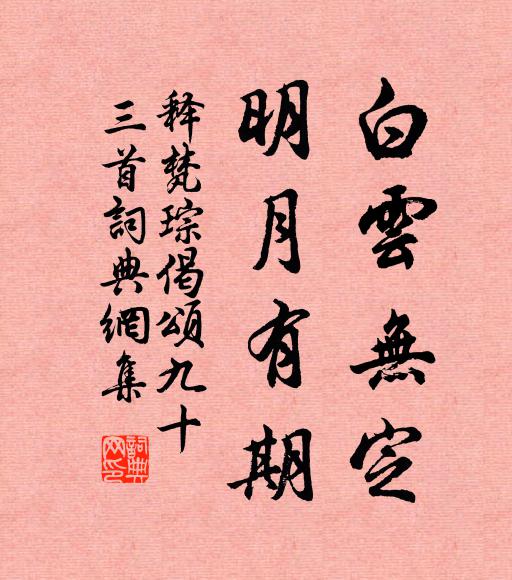 白雲無定
明月有期
释梵琮偈頌九十
三首詞典網集
詞典
网印